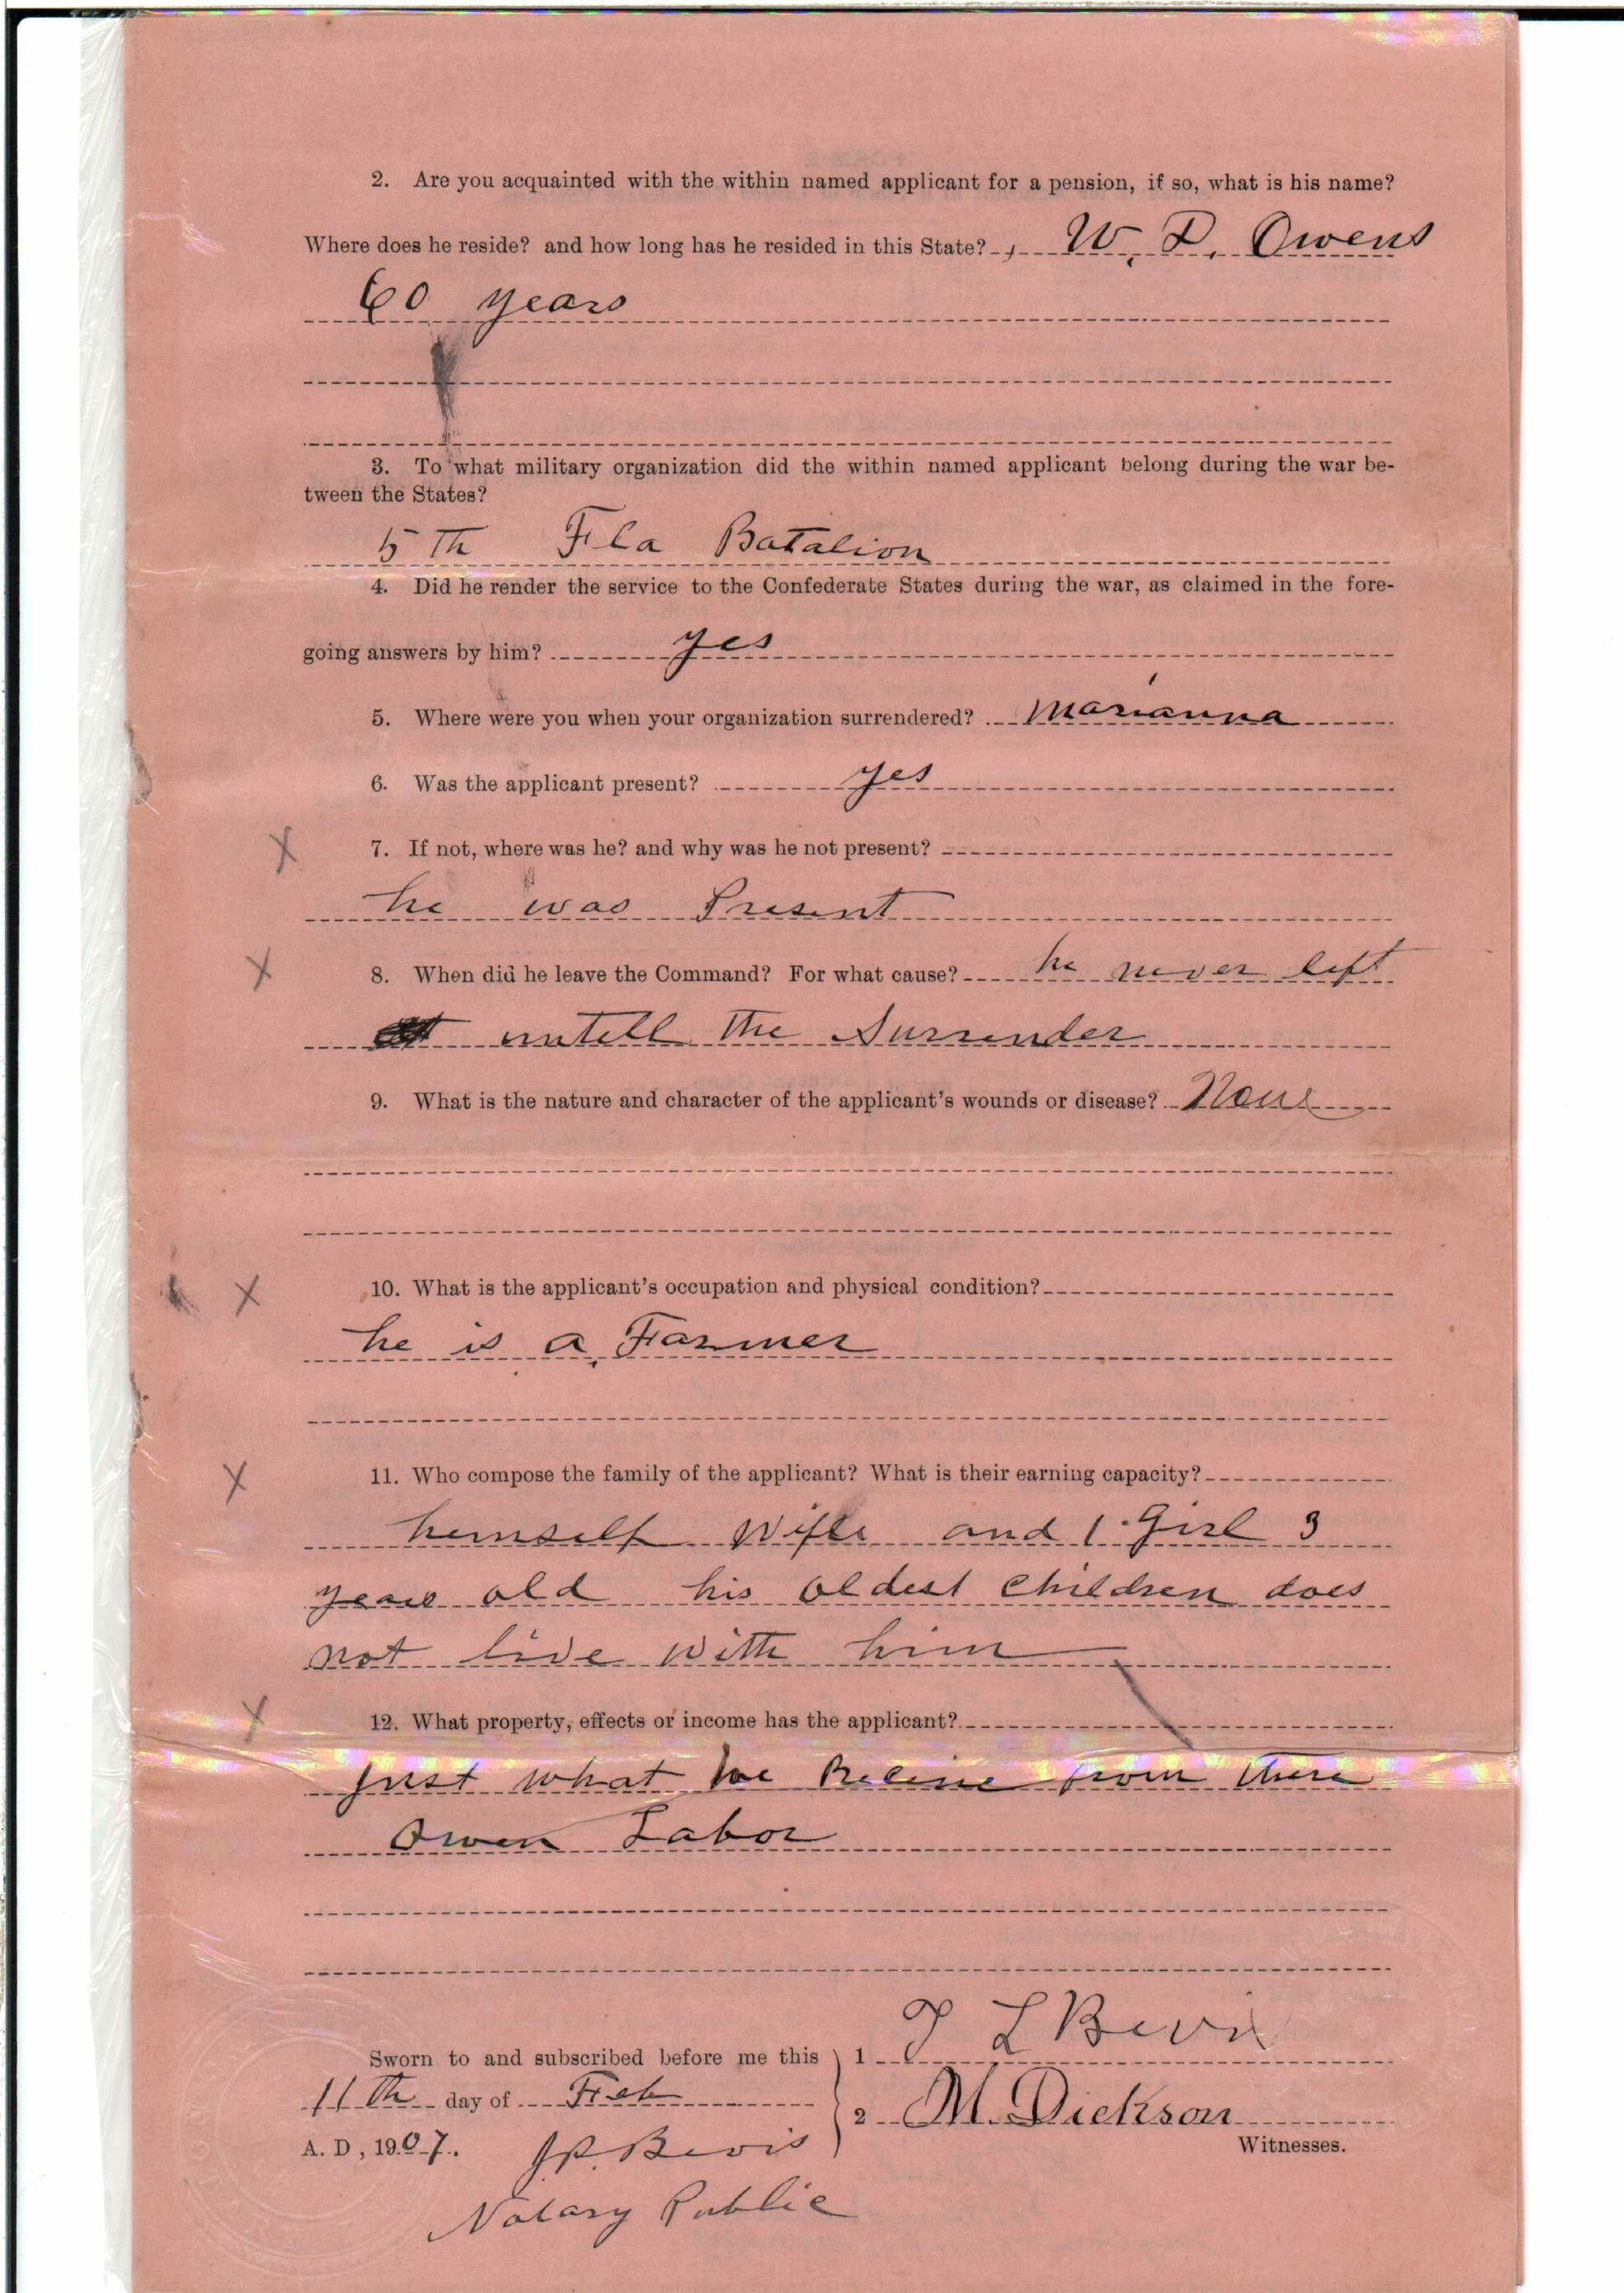 2. Are you acquainted with the within named applicant for a pension, if so, what is his name?
Where does he reside? and how long has he resided in this State? W. D. Owens
60 years
3. To what military organization did the within named applicant belong during the war be-
tween the States?
5 Th Fla Batalion
4. Did he render the service to the Confederate States during the war, as claimed in the fore-
going answers by him? yes
5. Where were you when your organization surrendered? Marianna
6. Was the applicant present? yes
X 7. If not, where was he? and why was he not present?
he was Present
X 8. When did he leave the Command? For what cause? he never left
untell the Surrender
9. What is the nature and character of the applicant's wounds or disease? None
X 10. What is the applicant's occupation and physical condition?
he is a Farmer
X 11. Who compose the family of the applicant? What is their earning capacity?
hemself Wife and 1 Girl 3
years old his oldest Children does
not live with him
X 12. What property, effects or income has the applicant?
Just what he Receive from there
Owen Labor
Sworn to and subscribed before me this 1 T L Bevis
11th day of Feb
2 M. Dickson
A. D, 1907. J. P. Bevis Witnesses.
Notary Public